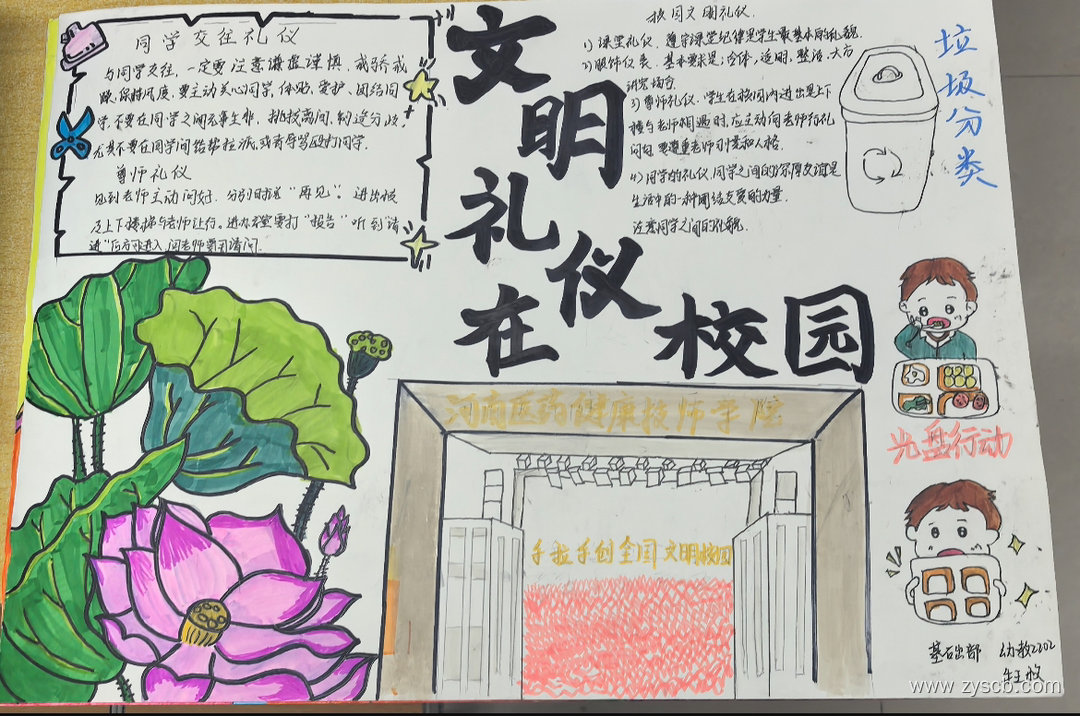 同学交往礼仪
与同学交往,一定要注意谦虚谨慎,戒骄戒
躁,保持风度,要主动关心同学,体贴、爱护、团结同
学,不要在同学之间无事生非,挑拨离间,制造分歧,
尤其不要在同学间拉帮结派,或者辱骂殴打同学。
尊师礼仪
见到老师主动问好,分别时说“再见”。进出校
及上下楼梯与老师让行。进办公室要打“报告”听到“请
进”后方可进入,问老师要用请问
文明
礼仪
在校园
校园文明礼仪
1)课堂礼仪,遵守课堂纪律是学生最基本的礼貌
2)服饰仪表,基本要求是:合体,适用,整洁,大方
讲究场合
3)尊师礼仪,学生在校园内进出或上下
楼与老师相遇时,应主动向老师行礼
问句,要尊重老师习惯和人格.
4)同学的礼仪,同学之间的深厚友谊是
生活中的一种团结友爱的力量.
注意同学之间的礼貌.
垃圾分类
光盘行动
河南医药健康技师学院
手拉手创全国文明校园
基础部 幼教2202
www.zyscb.com